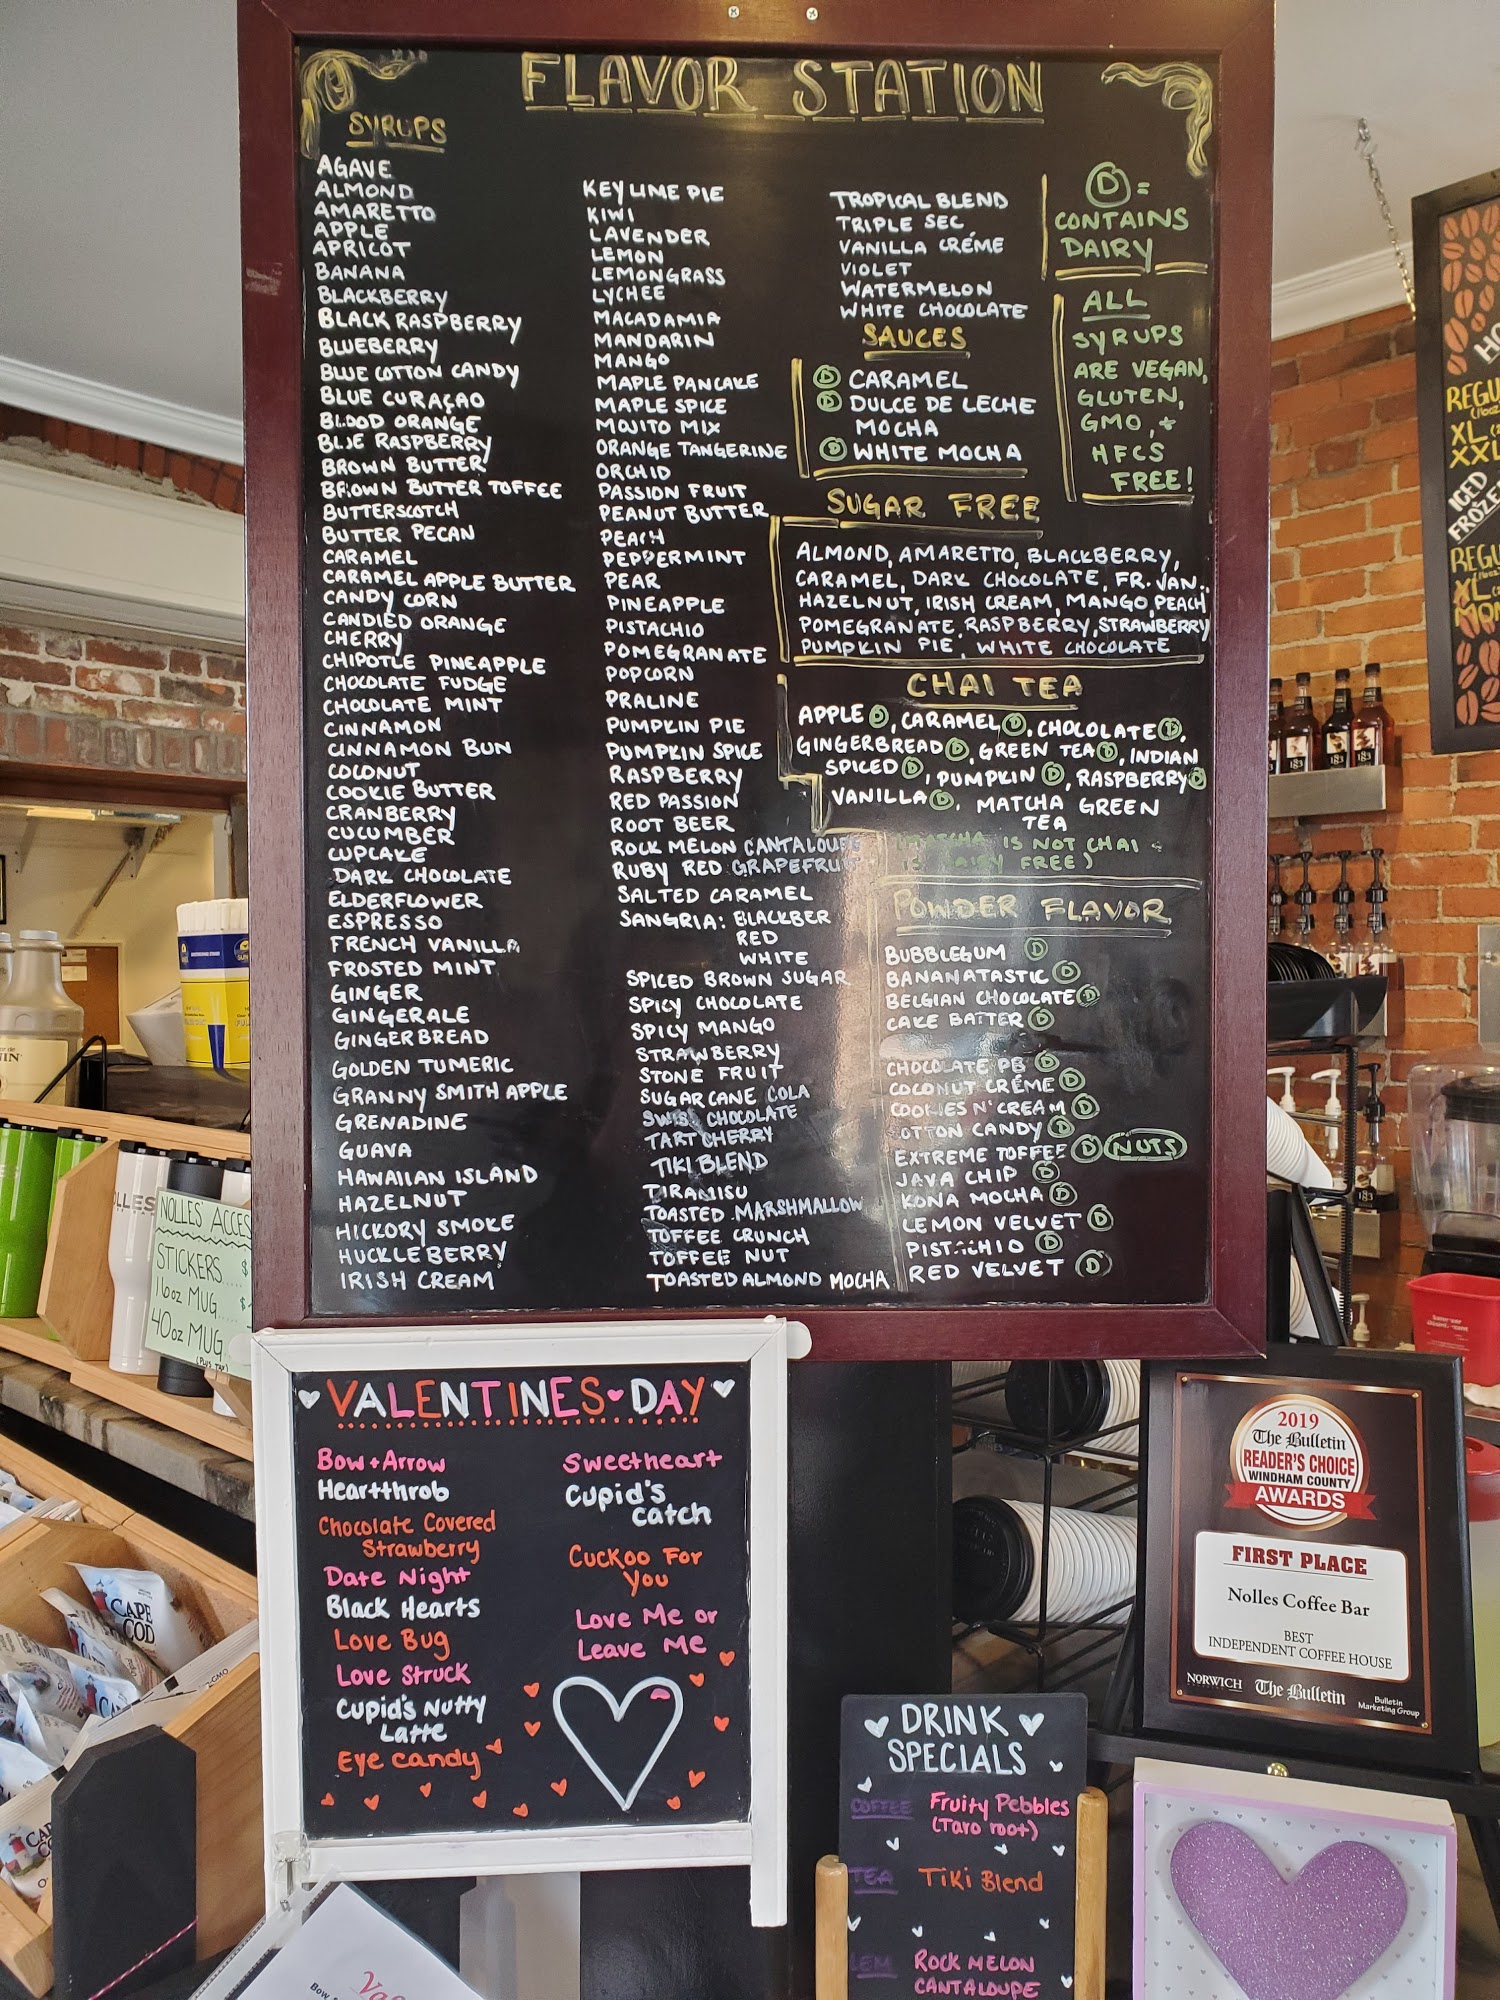 FLAVOR STATION
SYRUPS
AGAVE
ALMOND
AMARETTO
APPLE
APRICOT
BANANA
BLACKBERRY
BLACK RASPBERRY
BLUEBERRY
BLUE COTTON CANDY
BLUE CURAÇAO
BLOOD ORANGE
BLUE RASPBERRY
BROWN BUTTER
BROWN BUTTER TOFFEE
BUTTERSCOTCH
BUTTER PECAN
CARAMEL
CARAMEL APPLE BUTTER
CANDY CORN
CANDIED ORANGE
CHERRY
CHIPOTLE PINEAPPLE
CHOCOLATE FUDGE
CHOCOLATE MINT
CINNAMON
CINNAMON BUN
COCONUT
COOKIE BUTTER
CRANBERRY
CUCUMBER
CUPCAKE
DARK CHOCOLATE
ELDERFLOWER
ESPRESSO
FRENCH VANILLA
FROSTED MINT
GINGER
GINGERALE
GINGERBREAD
GOLDEN TUMERIC
GRANNY SMITH APPLE
GRENADINE
GUAVA
HAWAIIAN ISLAND
HAZELNUT
HICKORY SMOKE
HUCKLEBERRY
IRISH CREAM
KEY LIME PIE
KIWI
LAVENDER
LEMON
LEMONGRASS
LYCHEE
MACADAMIA
MANDARIN
MANGO
MAPLE PANCAKE
MAPLE SPICE
MOJITO MIX
ORANGE TANGERINE
ORCHID
PASSION FRUIT
PEANUT BUTTER
PEACH
PEPPERMINT
PEAR
PINEAPPLE
PISTACHIO
POMEGRANATE
POPCORN
PRALINE
PUMPKIN PIE
PUMPKIN SPICE
RASPBERRY
RED PASSION
ROOT BEER
ROCK MELON CANTALOUPE
RUBY RED GRAPEFRUIT
SALTED CARAMEL
SANGRIA: BLACKBER
RED
WHITE
SPICED BROWN SUGAR
SPICY CHOCOLATE
SPICY MANGO
STRAWBERRY
STONE FRUIT
SUGARCANE COLA
SWISS CHOCOLATE
TART CHERRY
TIKI BLEND
TIRAMISU
TOASTED MARSHMALLOW
TOFFEE CRUNCH
TOFFEE NUT
TOASTED ALMOND MOCHA
TROPICAL BLEND
TRIPLE SEC
VANILLA CRÉME
VIOLET
WATERMELON
WHITE CHOCOLATE
D =
CONTAINS
DAIRY
ALL
SYRUPS
ARE VEGAN,
GLUTEN,
GMO, +
HFCS
FREE!
SAUCES
D CARAMEL
D DULCE DE LECHE
MOCHA
D WHITE MOCHA
SUGAR FREE
ALMOND, AMARETTO, BLACKBERRY,
CARAMEL, DARK CHOCOLATE, FR. VAN.,
HAZELNUT, IRISH CREAM, MANGO, PEACH
POMEGRANATE, RASPBERRY, STRAWBERRY
PUMPKIN PIE, WHITE CHOCOLATE
CHAI TEA
APPLE D, CARAMEL D, CHOCOLATE D,
GINGERBREAD D, GREEN TEA D, INDIAN
SPICED D, PUMPKIN D, RASPBERRY D
VANILLA D, MATCHA GREEN
TEA
(MATCHA IS NOT CHAI
IS DAIRY FREE)
POWDER FLAVOR
BUBBLEGUM D
BANANATASTIC D
BELGIAN CHOCOLATE D
CAKE BATTER D
CHOCOLATE PB D
COCONUT CRÉME D
COOKIES N' CREAM D
COTTON CANDY D
EXTREME TOFFEE D NUTS
JAVA CHIP D
KONA MOCHA D
LEMON VELVET D
PISTACHIO D
RED VELVET D
VALENTINES DAY
Bow + Arrow
Heartthrob
Chocolate Covered
Strawberry
Date Night
Black Hearts
Love Bug
Love Struck
Cupid's Nutty
Latte
Eye candy
Sweetheart
Cupid's
Catch
Cuckoo For
You
Love Me or
Leave Me
DRINK
SPECIALS
COFFEE Fruity Pebbles
(Taro root)
TEA Tiki Blend
LEM ROCK MELON
CANTALOUPE
2019
The Bulletin
READER'S CHOICE
WINDHAM COUNTY
AWARDS
FIRST PLACE
Nolles Coffee Bar
BEST
INDEPENDENT COFFEE HOUSE
NORWICH
The Bulletin
Bulletin
Marketing Group
NOLLES' ACCES
STICKERS
16oz MUG
40oz MUG
CAPE
COD
REGU
XL
XXL
ICED
FROZE
REGU
XL